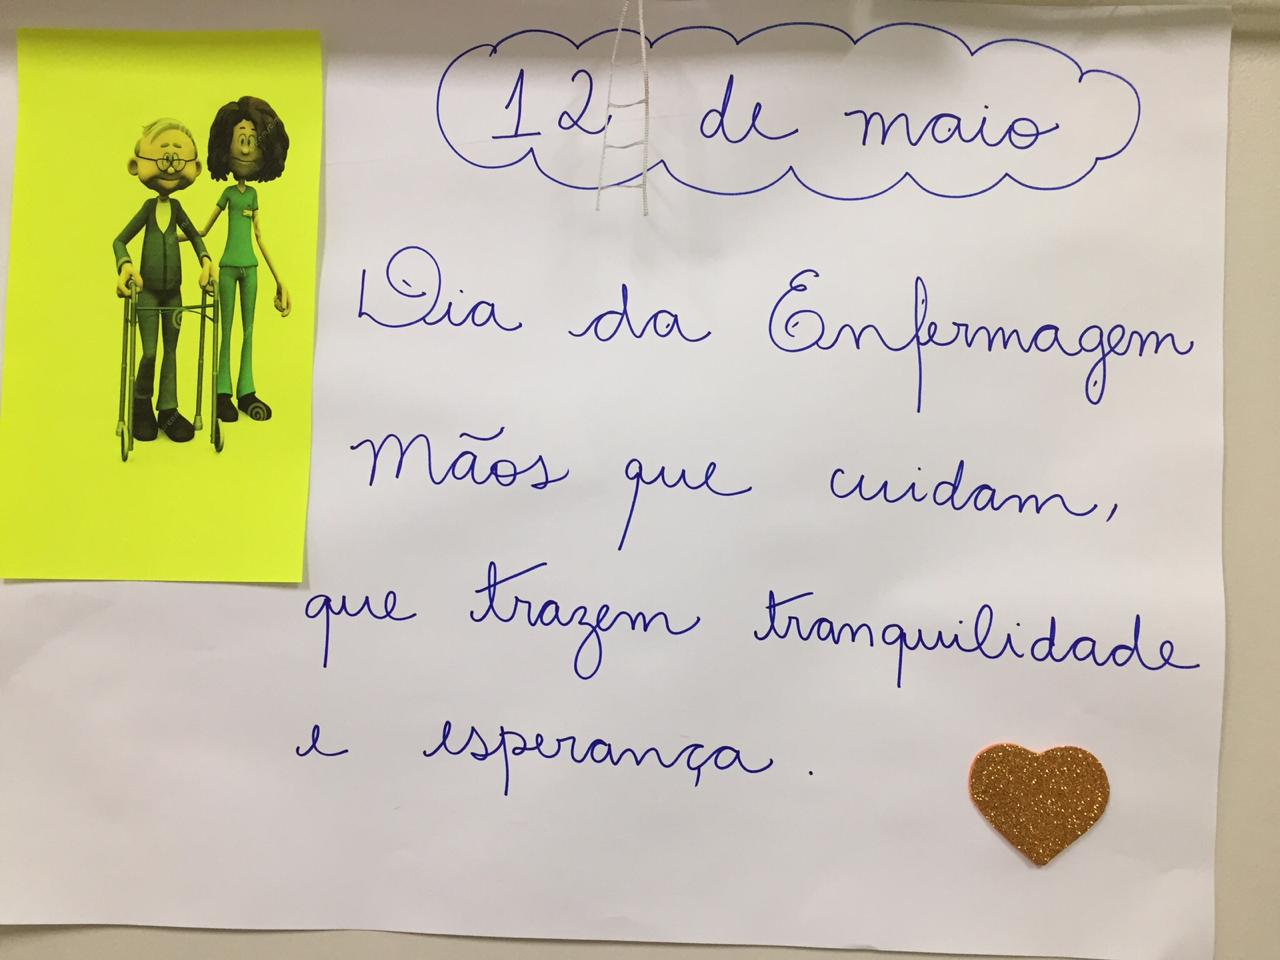 12 de maio
Dia da Enfermagem
Mãos que cuidam,
que trazem tranquilidade
e esperança.